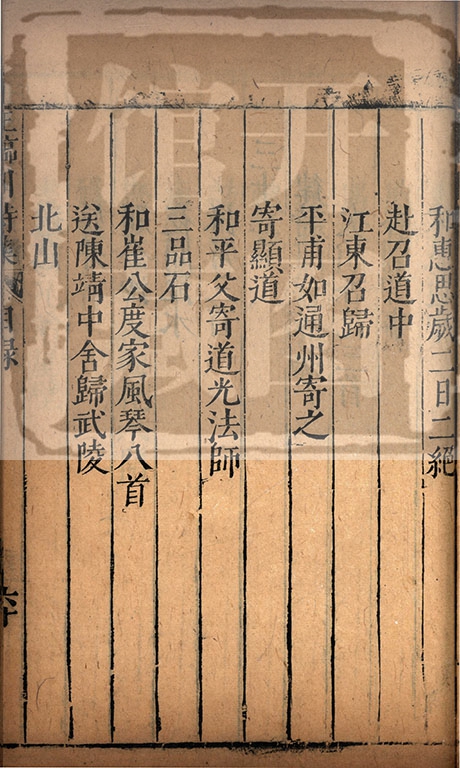 和惠思歲二日二絕
赴召道中
江東召歸
平甫如通州寄之
寄顯道
和平父寄道光法師
三品石
和崔公度家風琴八首
送陳靖中舍歸武陵
北山
目錄